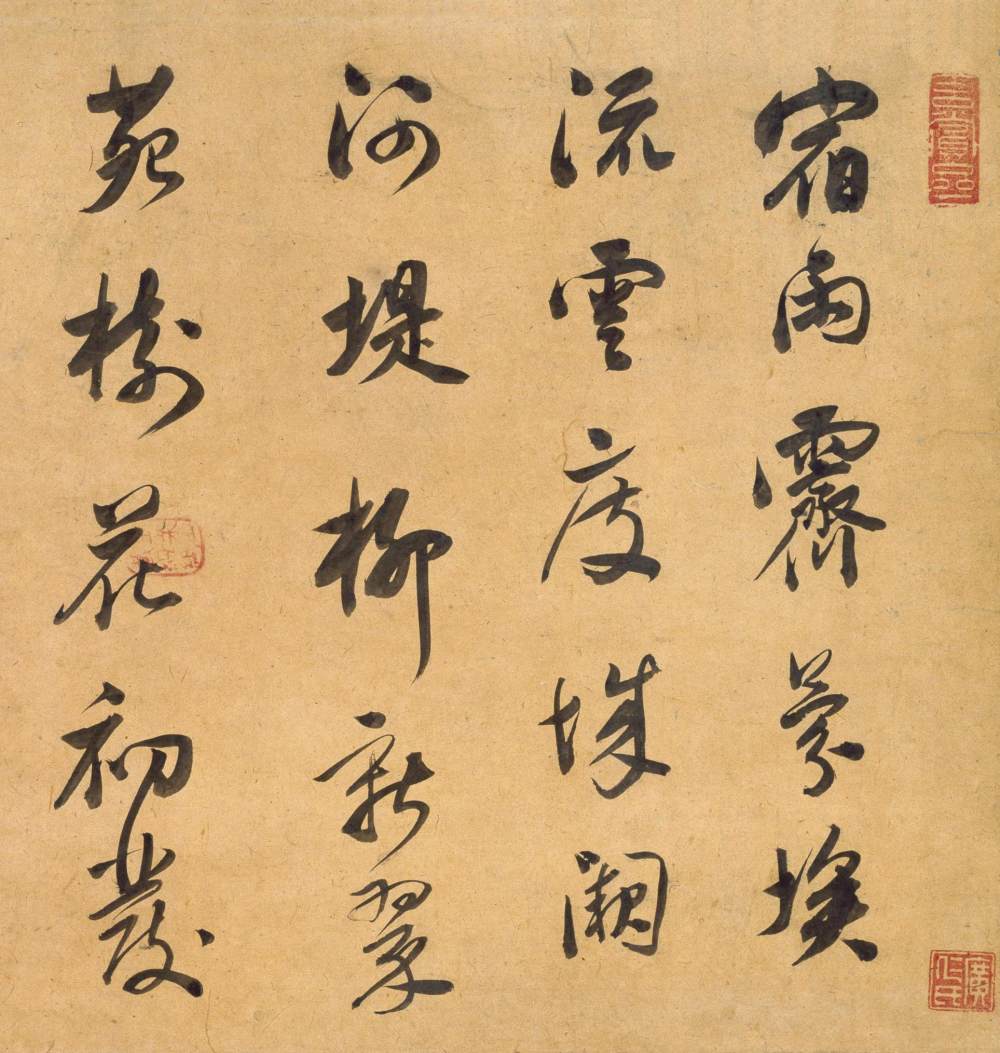 宿雨霽氛埃
流雲度城闕
河堤柳新翠
苑樹花初發